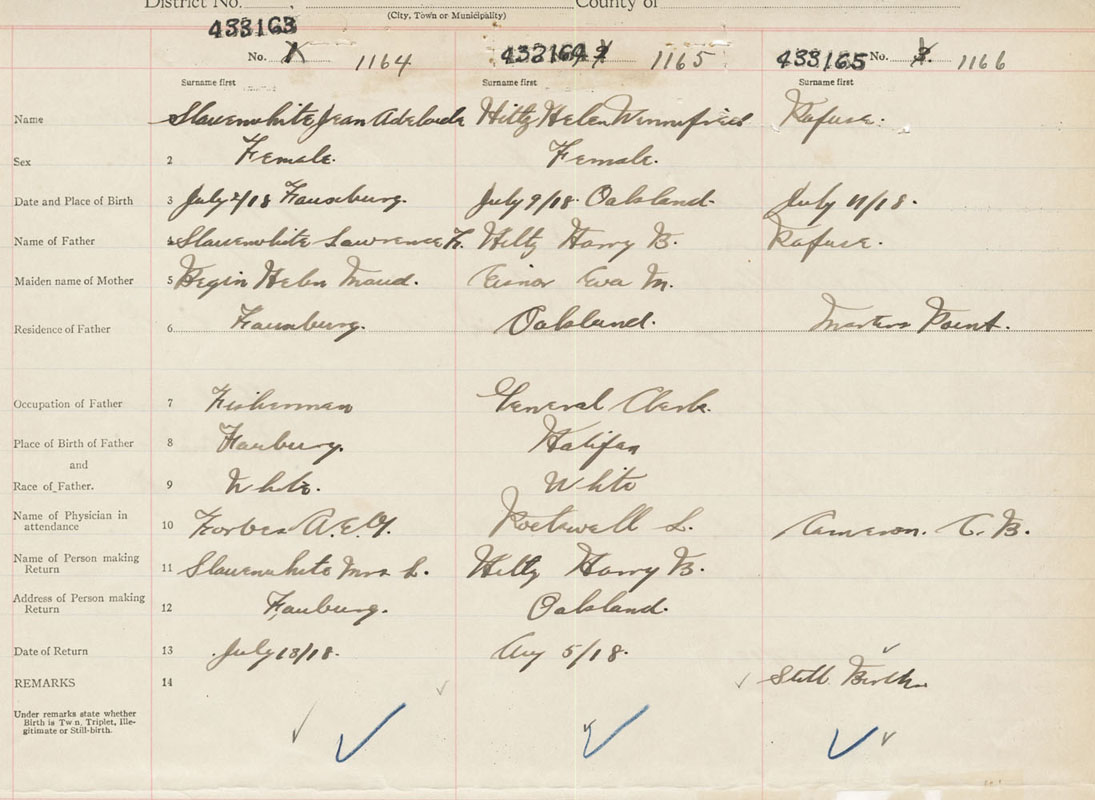 District No. County of
(City, Town or Municipality)
433163 432164 433165
No. 1 1164 2 1165 No. 3. 1166
Surname first Surname first Surname first
Name Slauenwhite Jean Adelaide Hiltz Helen Winnifred Rafuse.
Sex 2 Female. Female.
Date and Place of Birth 3 July 2/18 July 9/18. Oakland. July 11/18.
Name of Father Slauenwhite Lawrence H. Hiltz Harry B. Rafuse.
Maiden name of Mother 5 Begin Helen Maud. Eisnor Eva M.
Residence of Father 6 Oakland. Martins Point.
Occupation of Father 7 Fisherman General Clerk.
Place of Birth of Father 8 Halifax
and
Race of Father. 9 White. White
Name of Physician in
attendance 10 Forbes A.E.G. Rockwell L. Cameron. C. B.
Name of Person making
Return 11 Slauenwhite Mrs L. Hiltz Harry B.
Address of Person making
Return 12 Oakland.
Date of Return 13 July 13/18. Aug 5/18.
REMARKS 14 Still Birth.
Under remarks state whether
Birth is Twin, Triplet, Ille-
gitimate or Still-birth.